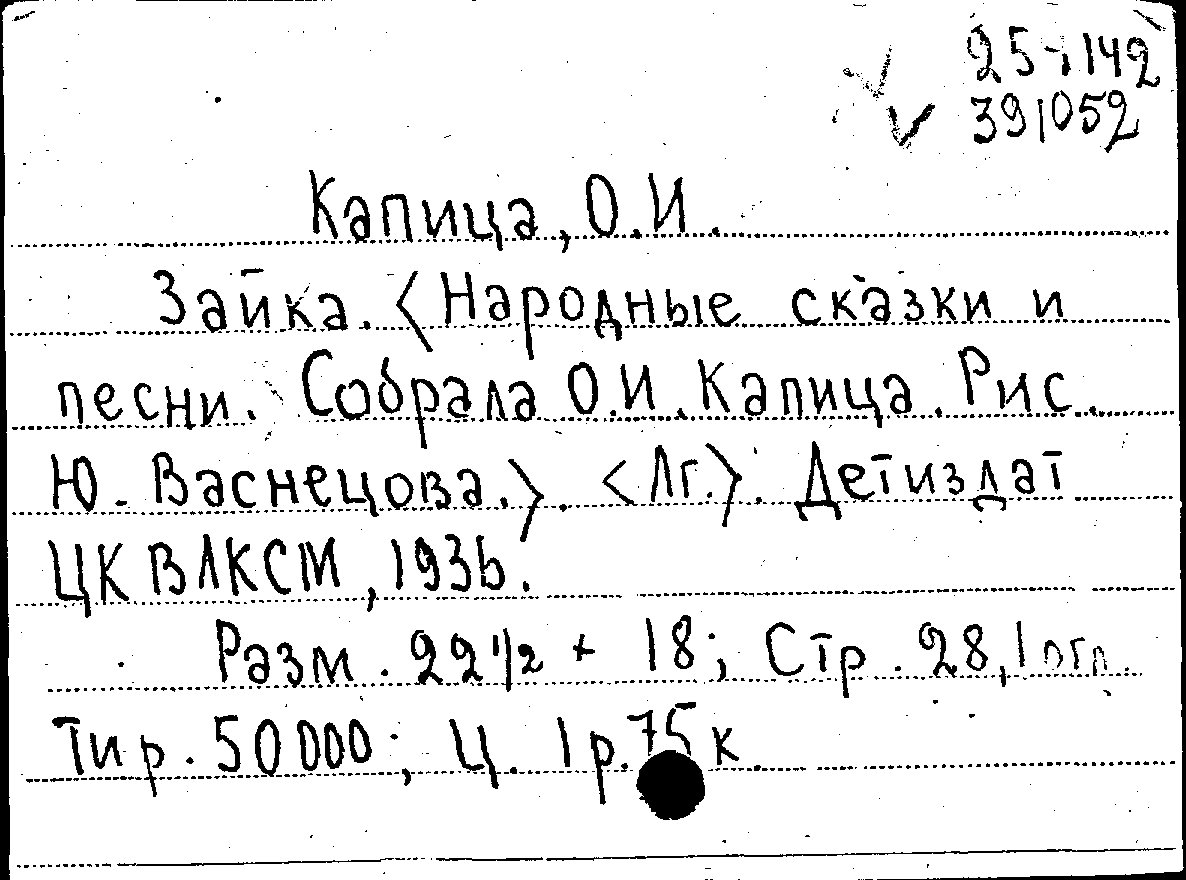 391052
Капица, О.И.
Зайка. <Народные сказки и
песни. Собрала О.И. Капица. Рис.
Ю. Васнецова.>. <Лг.>. Детиздат
ЦК ВЛКСМ, 1936.
Разм. 22 1/2 + 18; Стр. 28, 1 огл.
Тир. 50000; Ц. 1 р. 75 к.